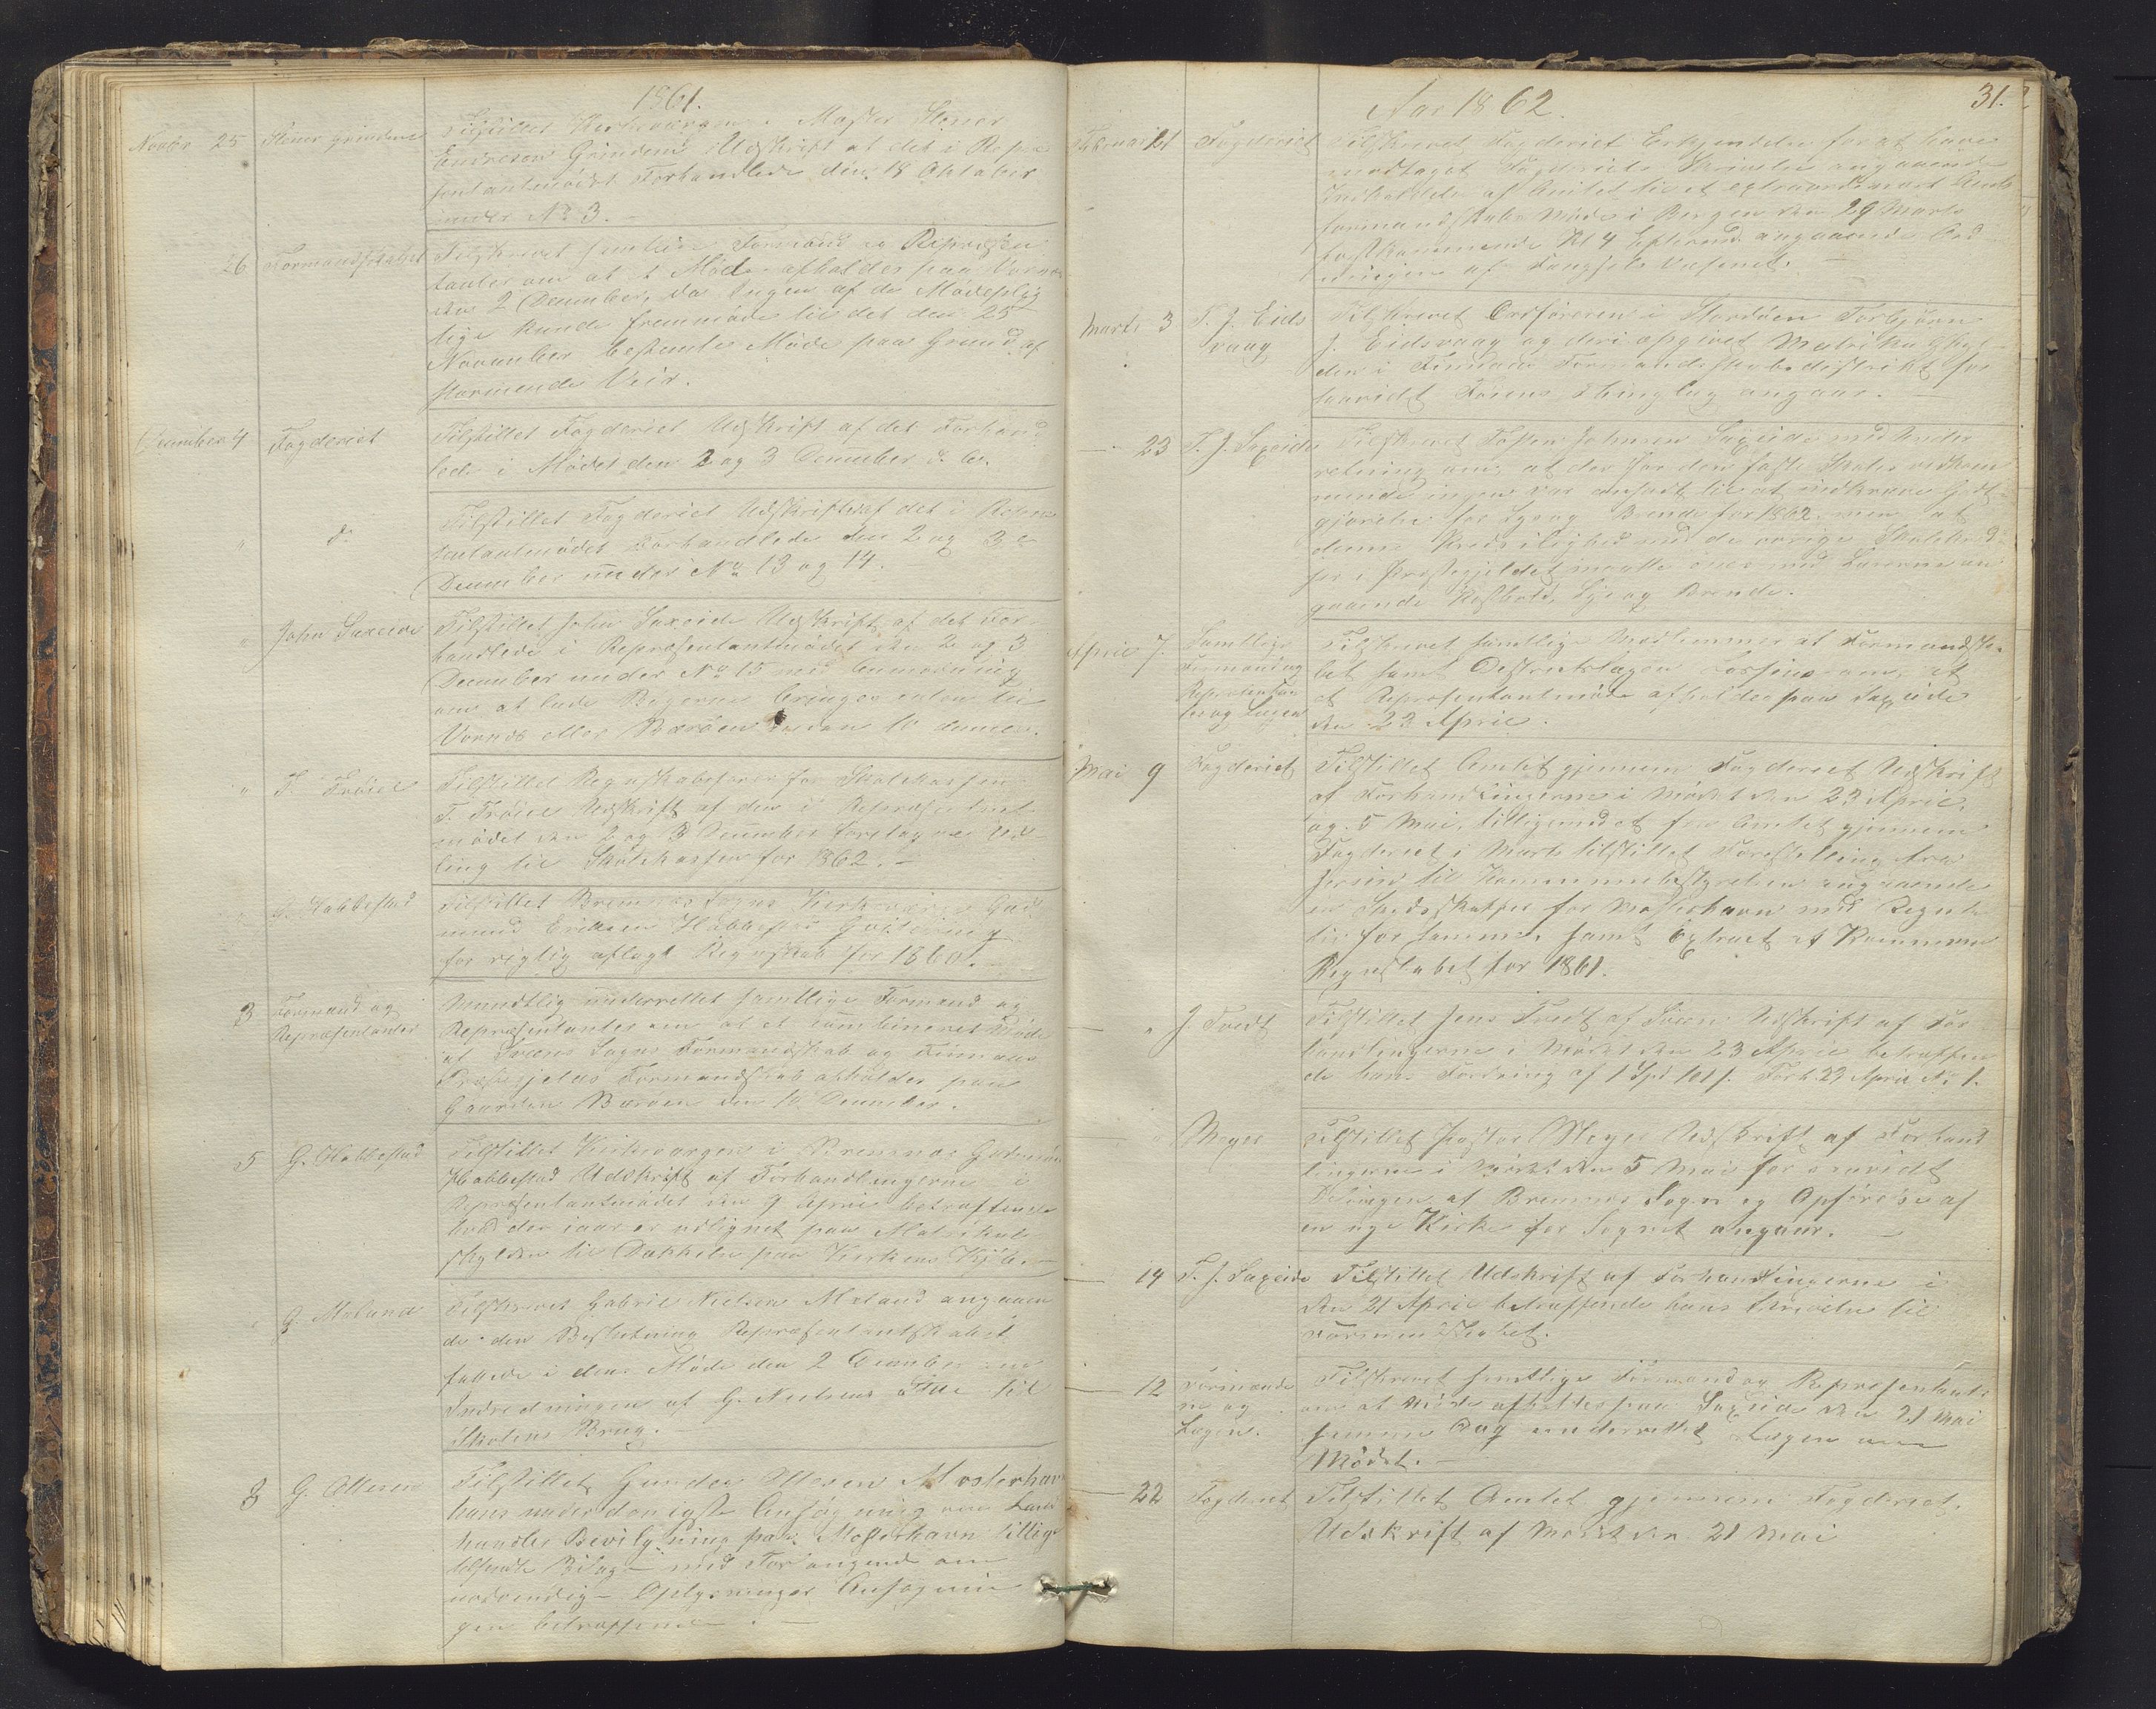 1861.
Novbr 25 Stener grindene Tilstillet Kirkeværgen i Moster Stener
Endresen Grindene Udskrift af det i Repræ
sentantmødet Forhandlede den 18 Oktober
under No 3. -
26 Formandskabet Tilskrevet samtlige Formænd og Repræsen
tanter om at et Møde afholdes paa Vornæs
den 2 December, da Ingen af de Mødeplig
tige kunde fremmøde til det den 25
November bestemte Møde paa Grund af
stormende Veir.
December 4 Fogderiet Tilstillet Fogderiet Udskrift af det Forhand
lede i Mødet den 2 og 3 December d. A.
" do Tilstillet Fogderiet Udskrift af det i Repræ
sentantmødet Forhandlede den 2 og 3
December under No 13 og 14.
" John Saxeide Tilstillet John Saxeide Udskrift af det For
handlede i Repræsentantmødet den 2 og 3
December under No 15 med Anmodning
om at lade Bøgerne bringes enten til
Vornæs eller Bærøen inden 10 dennes.
" T. Frøiel Tilstillet Regnskabsfører for Skolekassen
T. Frøiel Udskrift af den i Repræsentant
mødet den 2 og 3 December foretagne Ud-
ling til Skolekassen for 1862. -
" G. Habbestad Tilstillet Bremnes Sogns Kirkeværge Gud
mund Eriksen Habbestad Qvittering
for rigtig aflagt Regnskab for 1860. -
3 Formænd og
Repræsentanter Mundtlig underrettet samtlige Formænd og
Repræsentanter om at et combineret Møde
af Føiens Sogns Formandskab og Finnaas
Præstegjelds Formandskab afholdes paa
Gaarden Bærøen den 10 December.
5 G. Habbestad Tilstillet Kirkeværgen i Bremnes Gudmun
Habbestad Udskrift af Forhandlingerne i
Repræsentantmødet den 9 April betræffende
hvad der iaar er udlignet paa Matrikul
skylden til Dækkelse paa Kirkens Kjøb. -
" G. Mæland Tilskrevet Gabriel Nielsen Mæland angaaen
de den Beslutning Repræsentantskabet
fattede i dens Møde den 2 December om
Indredningen af G. Nielsens Stue til
Skolens Brug. -
8 G. Ottesen Tilstillet Gunder Ottesen Mosterhavn
hans underdanigste Ansøgning om Land
handler Bevilgning paa Mosterhavn tillige
med Bilag - med Forlangende om
nødvendig - Oplysninger Ansøgnin
gen betræffende. -
Aar 1862. 31.
Februar 21 Fogderiet Tilskrevet Fogderiet Erkjendelse for at have
modtaget Fogderiets Skrivelse angaaende
Indkaldelse af Amtet til et extraordinært Amts
formandskabs Møde i Bergen den 29 Marts
førstkommende Kl 4 Efterm. angaaende Ord
ningen af Fængsels Væsenet. -
Marts 3 T. J. Eids
vaag Tilskrevet Ordføreren i Stordøen Torbjørn
J. Eidsvaag og deri opgivet Matrikulskyl-
den i Finnaas Formandskabsdistrikt for
saavidt Føiens Thinglag angaar. -
- 23 T. J. Saxeide Tilskrevet Tosten Johnsen Saxeide med Under
retning om, at der for den faste Skoles vedkom
mende ingen var ansat til at indkræve Godt
gjørelse for Lys og Brende for 1862. men at
denne Kreds ilighed med de øvrige Skolekred
ser i Præstegjeldet maatte enes med Lærerne an
gaaende Kostholds, Lys og Brende.
April 7. Samtlige
Formænd og
Repræsentan
ter og Lægen Tilskrevet samtlige Medlemmer af Formandska
bet samt Destriktslægen om, at
et Repræsentantmøde afholdes paa Saxeide
den 23 April.
Mai 9 Fogderiet Tilstillet Amtet gjennem Fogderiet Udskrift
af Forhandlingerne i Mødet den 23 April
og 5 Mai, tilligemed et fra Amtet gjennem
Fogderiet i Marts tilstillet Forestilling fra
til Kommunebestyrelsen angaaende
en for Mosterhavn med Regula
tiv for samme, samt Extract af Kommune
Regnskabet for 1861.
- " J. Tvedt Tilstillet Jens Tvedt af Udskrift af For
handlingerne i Mødet den 23 April betræffen
de hans Fordring af 1 Spd 101 s. Forh. 23 April No 1.
- " Meyer Tilstillet Pastor Meyer Udskrift af Forhand
lingerne i Mødet den 5 Mai forsaavidt
Delingen af Bremnes Sogn og Opførelse af
en nye Kirke for Sognet angaar. -
- 14 T. J. Saxeide Tilstillet Udskrift af Forhandlingerne i
den 21 April betræffende hans Skrivelse til
Formandskabet.
- 12 Formænde
ne og
Lægen. Tilskrevet samtlige Formænd og Repræsentant
om at Møde afholdes paa Saxeide den 21 Mai
samme Dag underrettet Lægen om
Mødet. -
- 22 Fogderiet Tilstillet Amtet gjennem Fogderiet,
Udskrift af Mødet den 21 Mai